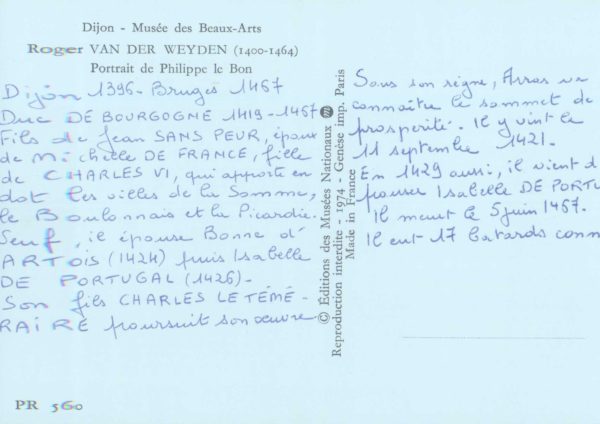 Dijon - Musée des Beaux-Arts
Roger VAN DER WEYDEN (1400-1464)
Portrait de Philippe le Bon
Dijon 1396 - Bruges 1467
Duc DE BOURGOGNE 1419-1467
Fils de Jean SANS PEUR, époux
de Michelle DE FRANCE, fille
de CHARLES VI, qui apporte en
dot les villes de la Somme,
le Boulonnais et la Picardie.
Veuf, il épouse Bonne d'
ARTOIS (1424) puis Isabelle
DE PORTUGAL (1426).
Son fils CHARLES LE TÉMÉ-
RAIRE poursuit son œuvre
PR 560
© Éditions des Musées Nationaux
Reproduction interdite - 1974 - Genèse imp. Paris
Made in France
Sous son règne, Arras va
connaître le sommet de
prospérité. Il y vint le
11 septembre 1421.
En 1429 aussi, il vient d
épouser Isabelle DE PORTU
Il meurt le 5 juin 1467.
Il eut 17 batards conn